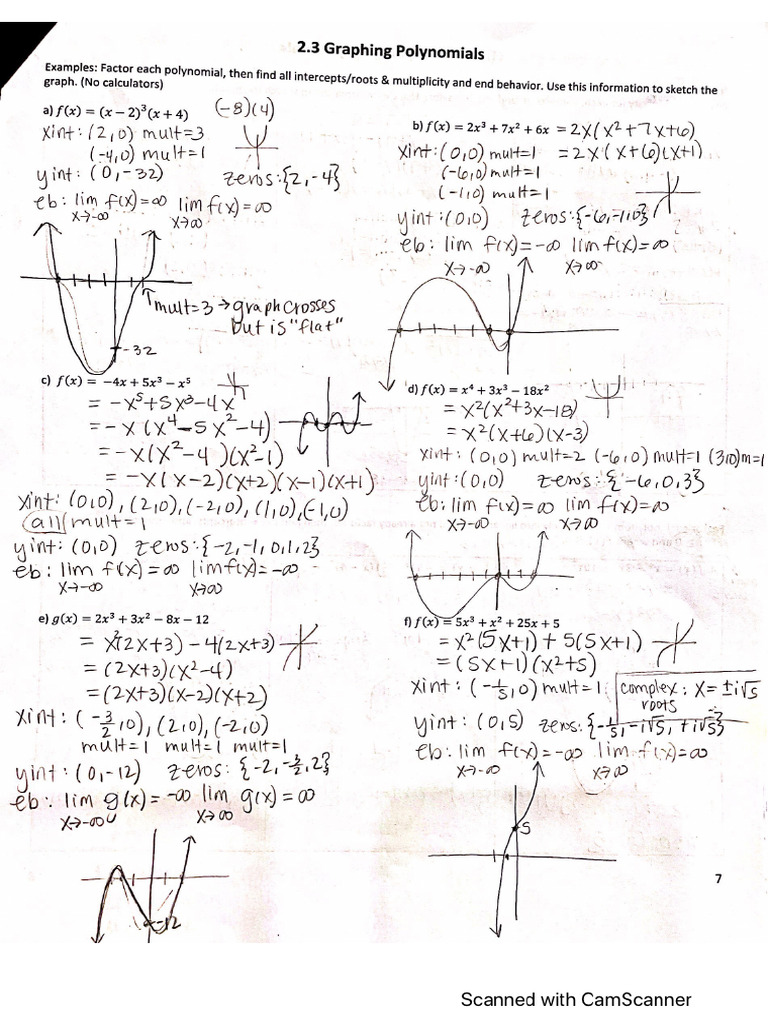 2.3 Graphing Polynomials
Examples: Factor each polynomial, then find all intercepts/roots & multiplicity and end behavior. Use this information to sketch the
graph. (No calculators)
a) f(x) = (x − 2)³(x + 4) (-8)(4)
xint: (2,0) mult=3
(-4,0) mult=1
yint: (0,-32) zeros:{2,-4}
eb: lim f(x)=∞ lim f(x)=∞
x→-∞ x→∞
mult=3 → graph crosses
but is "flat"
-32
b) f(x) = 2x³ + 7x² + 6x = 2x(x²+7x+6)
xint: (0,0) mult=1 = 2x(x+6)(x+1)
(-6,0) mult=1
(-1,0) mult=1
yint: (0,0) zeros:{-6,-1,0}
eb: lim f(x)=-∞ lim f(x)=∞
x→-∞ x→∞
c) f(x) = −4x + 5x³ − x⁵
= -x⁵+5x³-4x
= -x(x⁴-5x²-4)
= -x(x²-4)(x²-1)
= -x(x-2)(x+2)(x-1)(x+1)
xint: (0,0), (2,0), (-2,0), (1,0), (-1,0)
all mult=1
yint: (0,0) zeros:{-2,-1,0,1,2}
eb: lim f(x)=∞ lim f(x)=-∞
x→-∞ x→∞
d) f(x) = x⁴ + 3x³ − 18x²
= x²(x²+3x-18)
= x²(x+6)(x-3)
xint: (0,0) mult=2 (-6,0) mult=1 (3,0)m=1
yint: (0,0) zeros:{-6,0,3}
eb: lim f(x)=∞ lim f(x)=∞
x→-∞ x→∞
e) g(x) = 2x³ + 3x² − 8x − 12
= x²(2x+3) - 4(2x+3)
= (2x+3)(x²-4)
= (2x+3)(x-2)(x+2)
xint: (-3/2,0), (2,0), (-2,0)
mult=1 mult=1 mult=1
yint: (0,-12) zeros: {-2,-3/2,2}
eb: lim g(x)=-∞ lim g(x)=∞
x→-∞ x→∞
-12
f) f(x) = 5x³ + x² + 25x + 5
= x²(5x+1) + 5(5x+1)
= (5x+1)(x²+5)
xint: (-1/5,0) mult=1 complex: x=±i√5
roots
yint: (0,5) zeros:{-1/5,-i√5,+i√5}
eb: lim f(x)=-∞ lim f(x)=∞
x→-∞ x→∞
5
7
Scanned with CamScanner